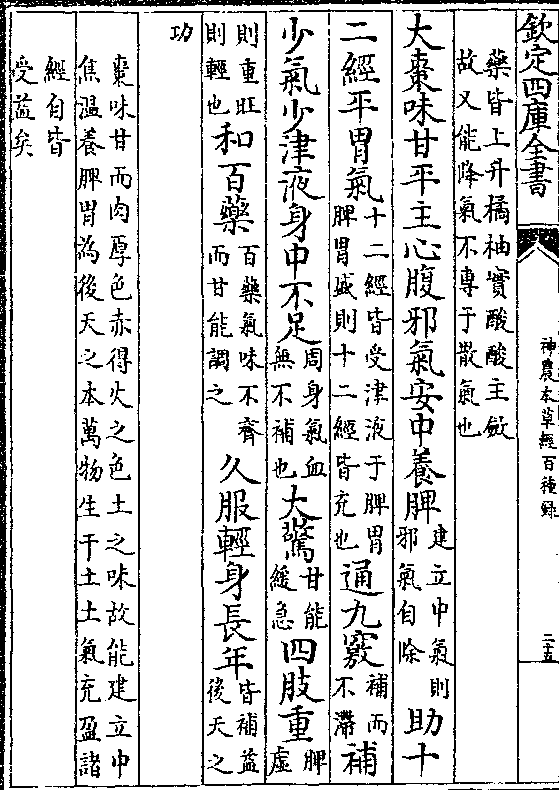 欽定四庫全書
神農本草經百種錄
二十五
藥皆上升橘柚實酸酸主斂
故又能降氣不專于散氣也
大棗味甘平主心腹邪氣安中養脾建立中氣則邪氣自除助十
二經平胃氣十二經皆受津液于脾胃脾胃盛則十二經皆充也通九竅補而不滯補
少氣少津液身中不足周身氣血無不補也大驚甘能緩急四肢重脾虛
則重旺則輕也和百藥百藥氣味不齊而甘能調之久服輕身長年皆補益後天之
功
棗味甘而肉厚色赤得火之色土之味故能建立中
焦温養脾胃為後天之本萬物生于土土氣充盈諸
經自皆
受益矣